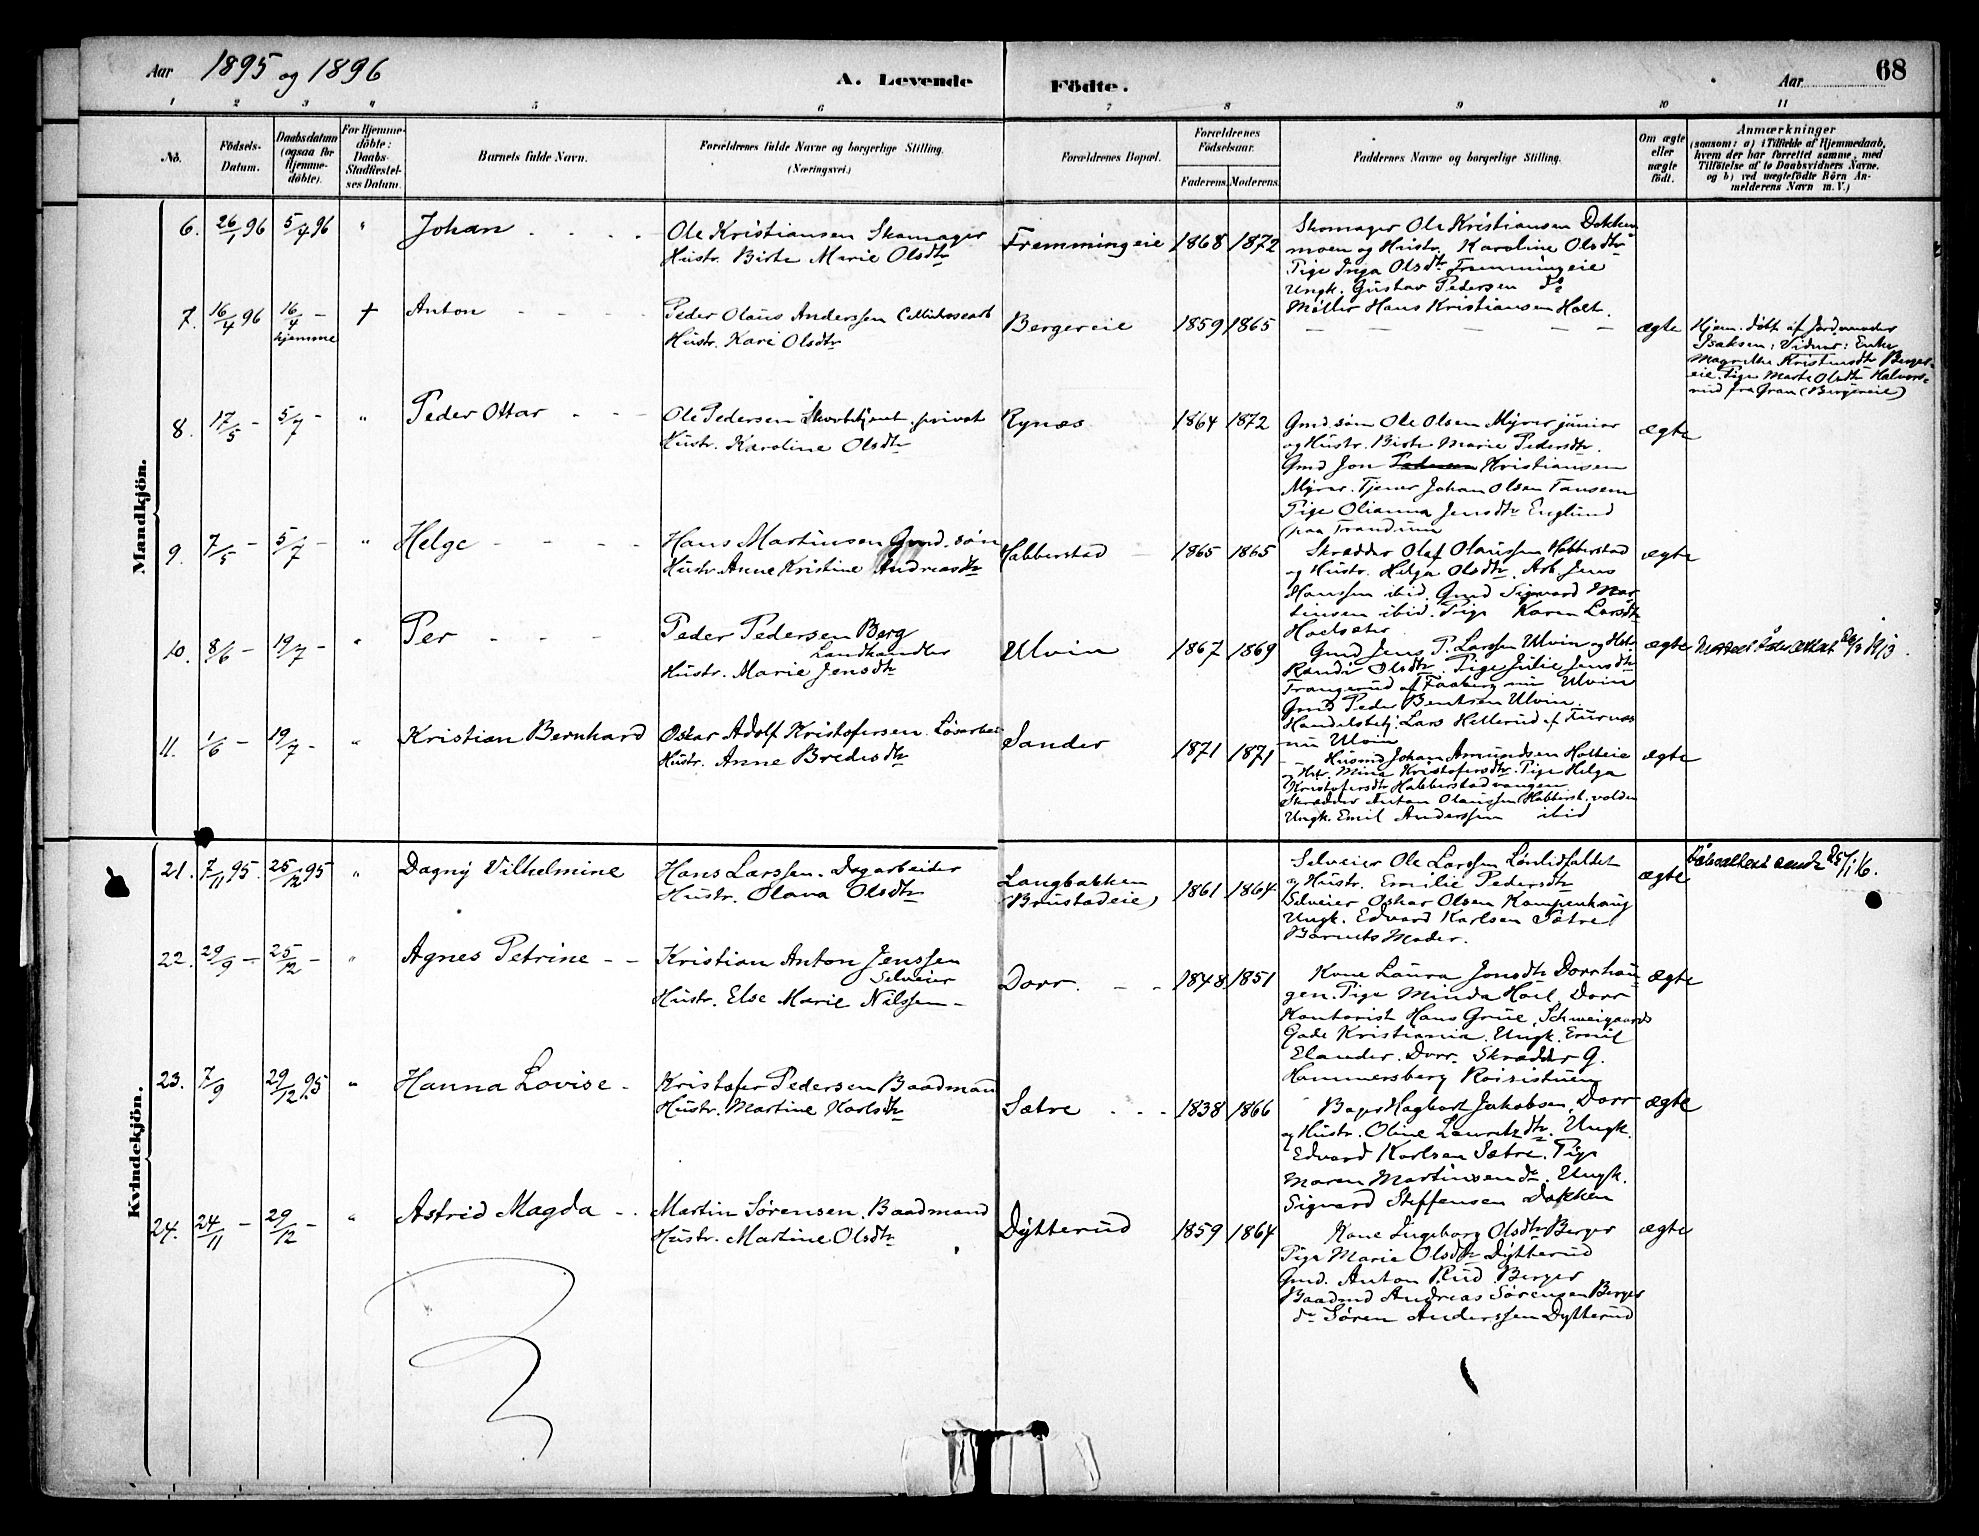 Aar 1895 og 1896
A. Levende Födte.
Aar 68
1 2 3 " 5 6 7 8 9 10 11
No.
Födsels-Datum.
Daabsdatum (ogsaa for Hjemme-döbte).
For Hjemme-döbte: Daabs-Stadfæstel-ses Datum.
Barnets fulde Navn.
Forældrenes fulde Navne og borgerlige Stilling.
(Næringsvei.)
Forældrenes Bopæl.
Forældrenes Födselsaar.
Faderens. Moderens.
Faddernes Navne og borgerlige Stilling.
Om ægte eller uægte födt.
Anmærkninger
(saasom: a) i Tilfælde af Hjemmedaab,
hvem der har forrettet samme, med
Tilföielse af to Daabsvidners Navne,
og b) ved uægtefödte Börn An-
melderens Navn m. V.)
Mandkjön.
6. 26/1 96 5/4 96 " Johan
Ole Kristiansen Skomager
Hustr. Birte Marie Olsdtr
Fremmingeie 1868 1872
Skomager Ole Kristiansen Dokken
moen og Hustr. Karoline Olsdtr
Pige Inga Olsdtr Fremmingeie
Ungk. Gustav Pedersen do
Møller Hans Kristiansen Holt.
7. 16/4 96 16/4 - hjemme † Anton
Peder Olaus Anderssen
Hustr. Kari Olsdtr
Bergereie 1859 1865 — — — — — ægte
Hjem. døbt af Jordmoder
Isaksen; Vidner: Enke
Magrethe Kristensdtr Berger-
eie. Pige Marte Olsdtr Halvors-
rud fra Gran (Bergereie)
8. 17/5 - 5/7 - " Peder Ottar
Ole Pedersen privat
Hustr. Karoline Olsdtr
Rynæs 1864 1872
Gmd.søn Ole Olsen Myrer junior
og Hustr. Birte Marie Pedersdtr.
Gmd Jon Pedersen Kristiansen
Myrer. Tjener Johan Olsen Tansem
Pige Olianna Jensdtr Englund
(paa Trandum
ægte
9. 7/5 - 5/7 - " Helge
Hans Martinsen Gmd.søn
Hustr Anne Kristine Andreasdtr
Habberstad 1865 1865
Skrædder Olaf Olaussen Habberstad
og Hustr. Helga Olsdtr, Arb. Jens
Hanssen ibid. Gmd Sigvard Mar-
tinsen ibid. Pige Karen Larsdtr
Hoelsæter
ægte
10. 8/6 - 19/7 - " Per
Peder Pedersen Berg
Landhandler
Hustr. Marie Jensdtr
Ulvin 1867 1869
Gmd Jens P. Larssen Ulvin og Hstr.
Randi Olsdtr. Pige Julie Jensdtr
Trangerud af Faaberg nu Ulvin
Gmd Peder Bentsen Ulvin.
Handelsbetj. Lars Hellerud af Furnæs
nu Ulvin
ægte
11. 1/6 - 19/7 - " Kristian Bernhard
Oskar Adolf Kristofersen. Løsarbei
Hustr. Anne Bredesdtr
Sander 1871 1871
Husmd Johan Amundsen Holteie
og Hstr. Mina Kristofersdtr. Pige Helga
Kristofersdtr Habberstadvangen
Skrædder Anton Olaussen Habberst.volden
Ungk. Emil Anderssen ibid
ægte
Kvindekjön.
21. 7/11 95. 25/12 95 " Dagny Vilhelmine
Hans Larssen. Dagarbeider
Hustr. Olava Olsdtr
Langbakken
(Brustadeie) 1861 1864
Selveier Ole Larssen Lønlidfaldet
og Hustr. Emilie Pedersdtr
Selveier Oskar Olsen Kampenhaug
Ungk. Edvard Karlsen Sætre
Barnets Moder.
ægte
22. 29/9 - 25/12 - " Agnes Petrine
Kristian Anton Jenssen
Selveier
Hustr. Else Marie Nilssen
Dorr. 1848 1851
Kone Laura Jonsdtr Dorrhau-
gen. Pige Minda Hoel Dorr
Kontorist Hans Grue, Schweigaards
Gade Kristiania. Ungk. Emil
Elander. Dorr. Skrædder G.
Hammersberg Roisistuen
ægte
23. 7/9 29/12 95 " Hanna Lovise
Kristofer Pedersen Baadmand
Hustr. Martine Karlsdtr
Sætre 1838 1866
Bager Hagbart Jakobsen, Dorr
og Hustr. Oline Lauritzdtr. Ungk.
Edvard Karlsen Sætre. Pige
Maren Martinsensdtr. Ungk.
Sigvard Steffensen Dokken
ægte
24. 24/11 - 29/12 - " Astrid Magda
Martin Sørensen. Baadmand
Hustr. Martine Olsdtr
Dytterud 1859 1864
Kone Ingeborg Olsdtr Berger
Pige Marie Olsdtr Dytterud
Gmd. Anton Rud Berger
Baadmd Andreas Sørensen Berger
do Søren Anderssen Dytterud
ægte